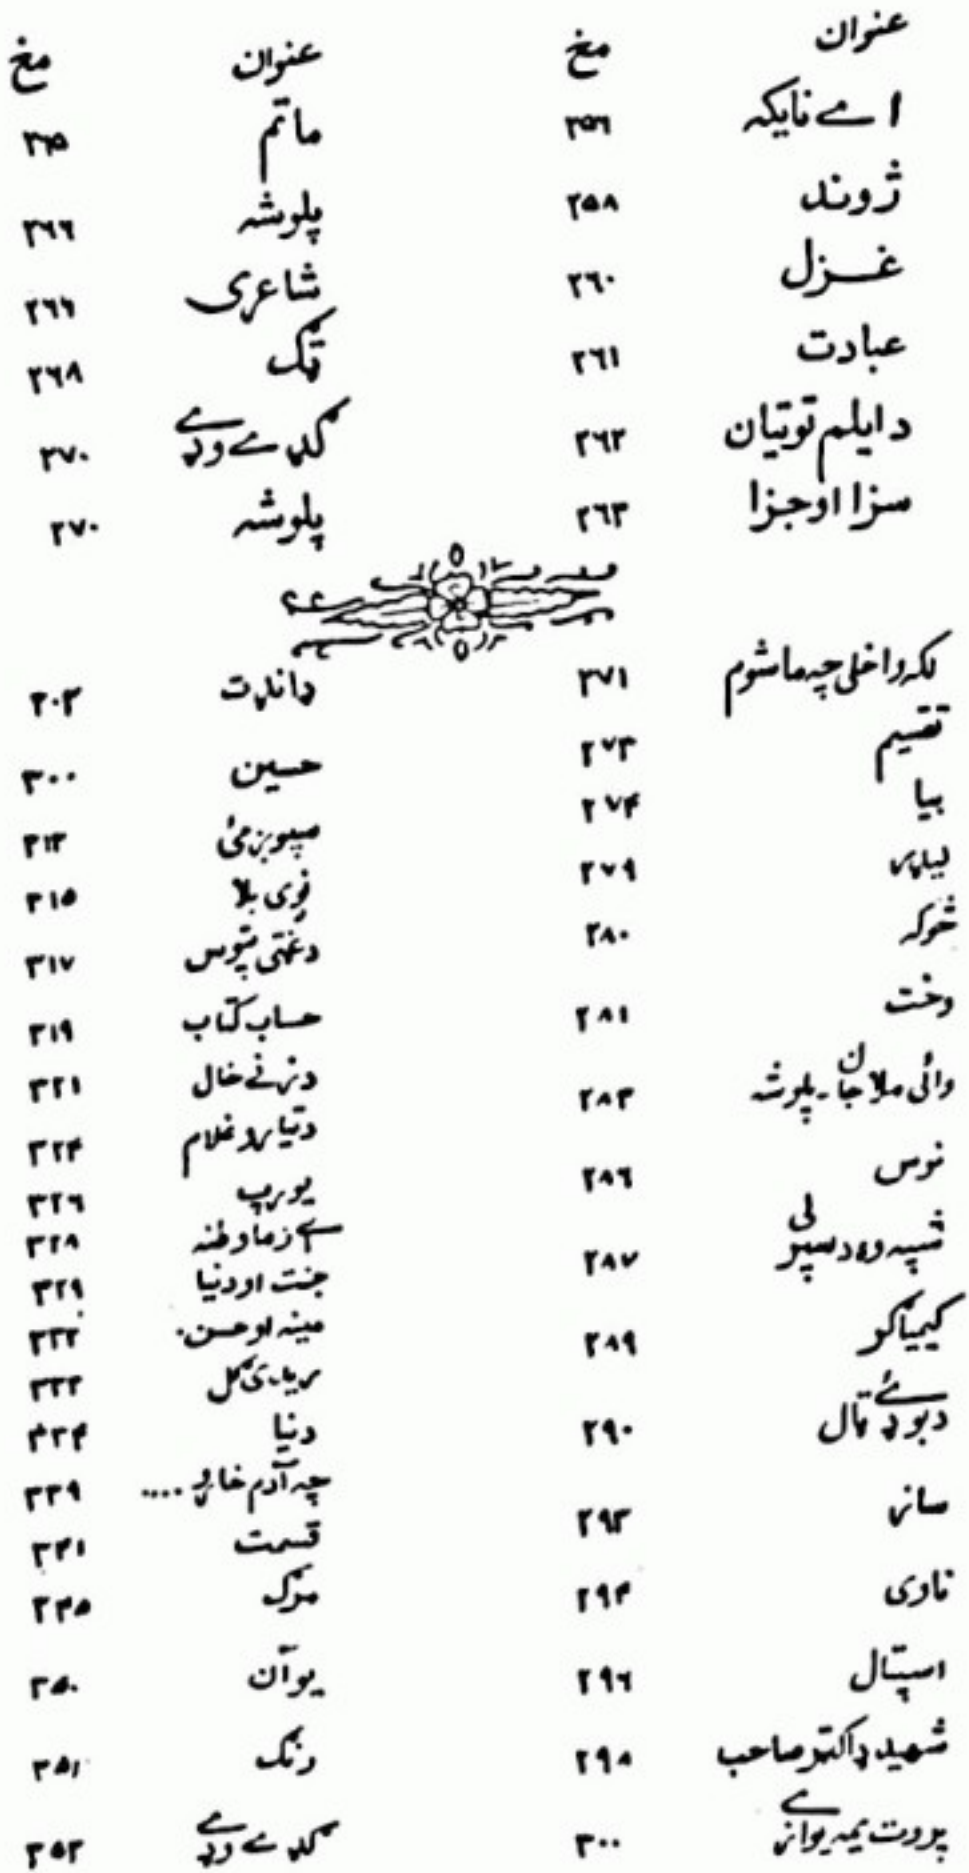 عنوان مخ
اے نایکہ ۲۵۶
ژوند ۲۵۸
غزل ۲۶۰
عبادت ۲۶۱
د ایلم توتیان ۲۶۲
سزا او جزا ۲۶۳
عنوان مخ
ماتم ۲۶۵
پلوشہ ۲۶۶
شاعری ۲۶۶
ټک ۲۶۸
ګډے وډے ۲۷۰
پلوشہ ۲۷۰
لکہ داخلی چہ ماشوم ۲۷۱
تقسیم ۲۷۳
بیا ۲۷۴
لیډر ۲۷۹
څوکہ ۲۸۰
وخت ۲۸۱
وائی ملا جان۔پلوشہ ۲۸۳
نوس ۲۸۶
شپہ وہ د سپرلی ۲۸۷
کیمیاګر ۲۸۹
د بوډئے ټال ۲۹۰
ساز ۲۹۳
ناوی ۲۹۴
اسپتال ۲۹۶
شهید ډاکټر صاحب ۲۹۸
پروت یمہ یواز ے ۳۰۰
ډانډت ۳۰۳
حسین ۳۰۰
سپوږمئ ۳۱۳
نوی بلا ۳۱۵
پوس ۳۱۷
حساب کتاب ۳۱۹
د زنے خال ۳۲۱
غلام ۳۲۴
یورپ ۳۲۶
اے زما وطنہ ۳۲۸
جنت او دنیا ۳۲۹
مینہ او حسن ۳۳۲
ریدی ګل ۳۳۳
دنیا ۳۳۴
چہ آدم خاں .... ۳۳۹
قسمت ۳۴۱
مرګ ۳۴۵
یو آن ۳۵۰
رنګ ۳۵۱
ګډے وډے ۳۵۳